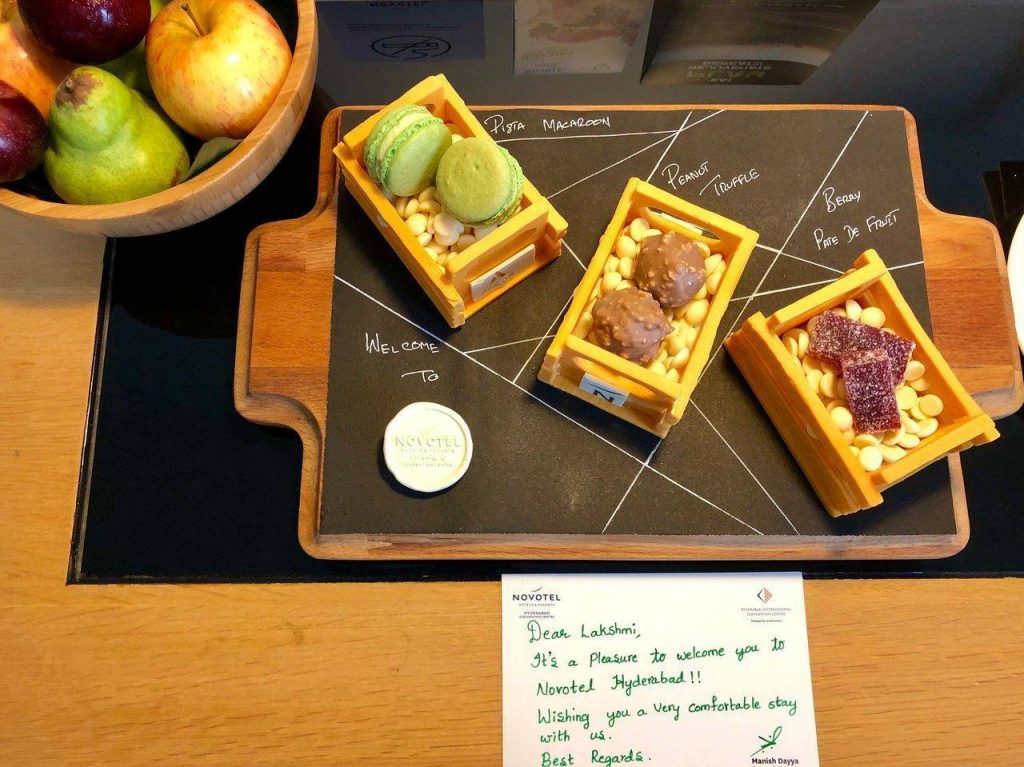 NOVOTEL
PISTA MACAROON
PEANUT
TRUFFLE
BERRY
PATE DE FRUIT
WELCOME
TO
NOVOTEL
N
NOVOTEL
HOTELS & RESORTS
HYDERABAD
CONVENTION CENTRE
HYDERABAD INTERNATIONAL
CONVENTION CENTRE
Dear Lakshmi,
It's a Pleasure to welcome you to
Novotel Hyderabad!!
Wishing you a very comfortable stay
with us.
Best Regards.
Manish Dayya